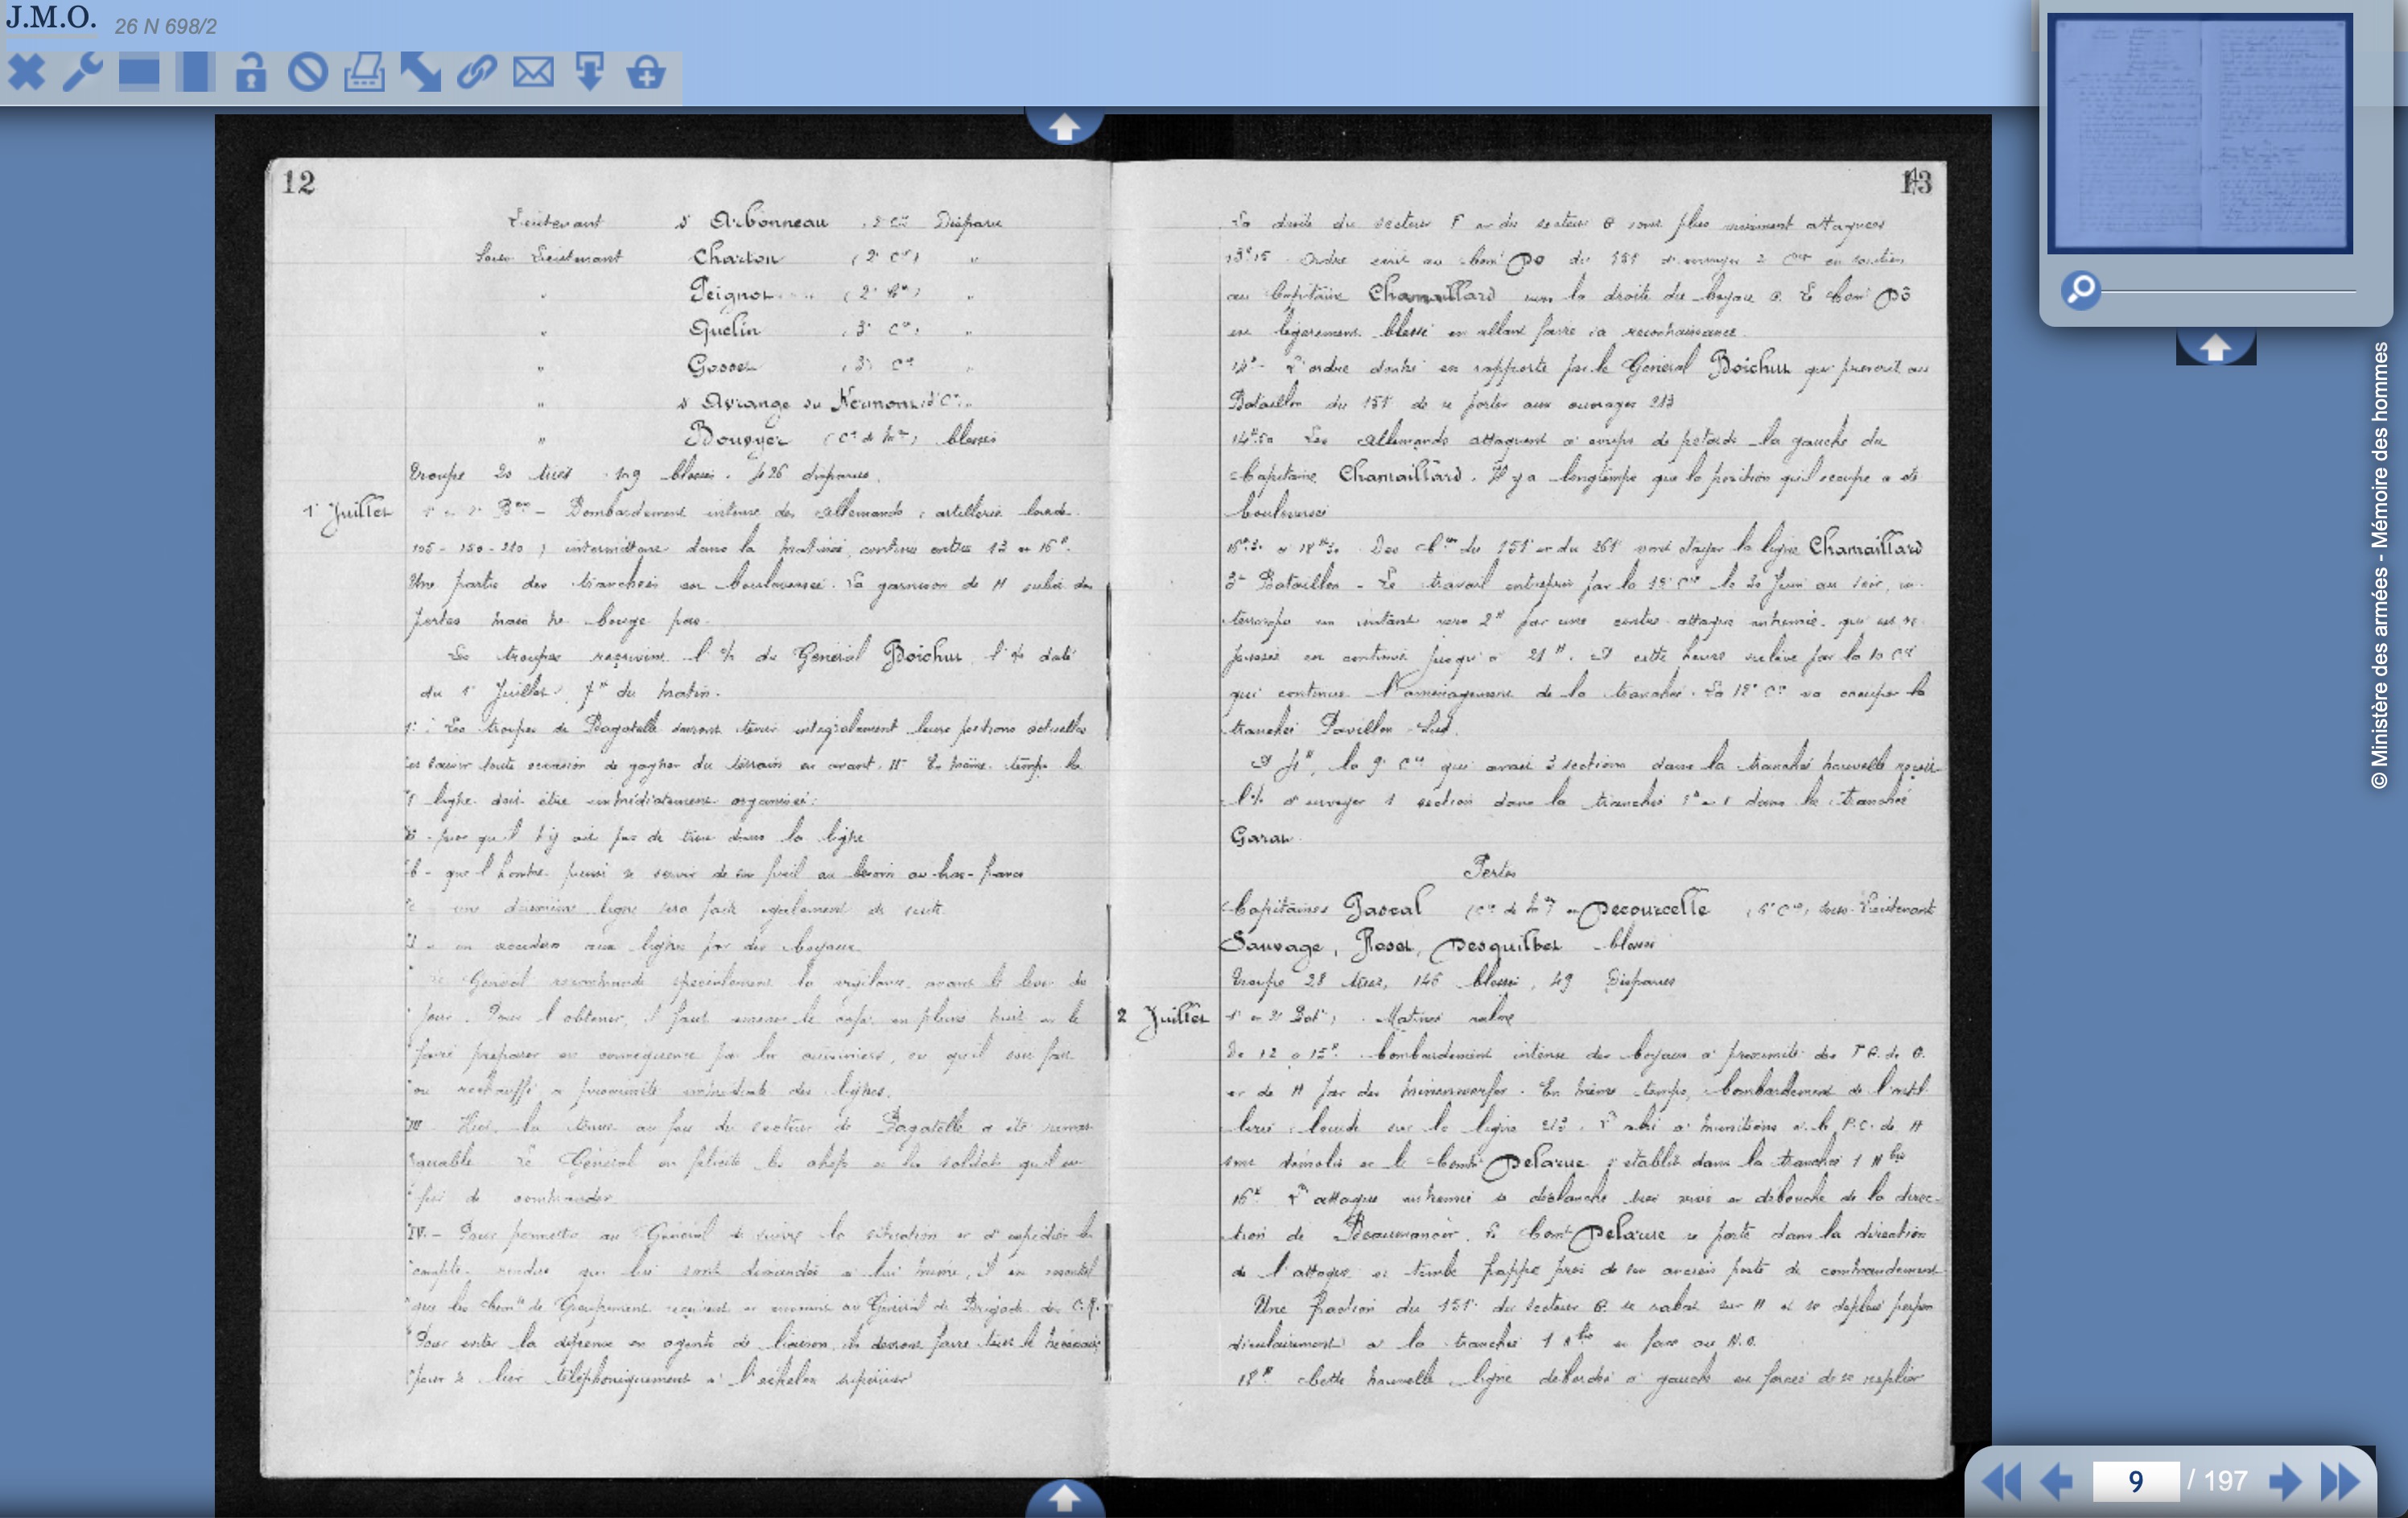 J.M.O. 26 N 698/2
12
Lieutenant d'Arbonneau Disparu
Sous Lieutenant Charton (2e Cie) "
" Peignot (2e Cie) "
" Guelin (3e Cie) "
" (3e) Cie "
" d'Avrange du
" Bouoyer (Cie de Mses) blessés
Troupe 20 tués blessés disparus.
1er Juillet 1er et 2e Bons - Bombardement intense des Allemands, artillerie lourde
105 - 150 - 210) intermittent dans la matinée, continu entre 13 et 16h.
Une partie des tranchées est bouleversée. La garnison de H subit des
pertes mais ne bouge pas.
Les troupes reçoivent l'% du Général Boichut, l'% daté
du 1er Juillet, 7h du matin.
1° : Les troupes de Bagatelle devront tenir intégralement leurs positions actuelles
et saisir toute occasion de gagner du terrain en avant. II - En même temps la
1e ligne doit être immédiatement organisée:
qu'il n'y ait pas de trou dans la ligne
b - que l'homme puisse se servir de son fusil au besoin
c - une deuxième ligne sera faite également de suite
d - on accèdera aux lignes par des boyaux
Le Général recommande spécialement la vigilance avant le lever du
jour. Pour l'obtenir, il faut amener le café en pleine nuit et le
faire préparer en conséquence par les cuisiniers, ou qu'il soit fait
ou réchauffé à proximité immédiate des lignes.
III - Hier, la tenue au feu du secteur de Bagatelle a été remar-
quable. Le Général en félicite les chefs et les soldats qu'il est
fier de commander
IV. - Pour permettre au Général de suivre la situation et d'expédier les
comptes rendus qui lui sont demandés à lui même, il est essentiel
que les Chefs de Groupement reçoivent et envoient au Général de Brigade des C.R.
Pour éviter la dépense en agents de liaison, ils devront faire tout le nécessaire
pour se lier téléphoniquement à l'échelon supérieur
13
La droite du secteur F et du secteur B sont plus vivement attaquées
13h15 Ordre écrit au Comt Pô du 151e d'envoyer 2 Cies en soutien
au Capitaine Chamaillard vers la droite du boyau B. Le Comt Pô
est légèrement blessé en allant faire sa reconnaissance.
14h - L'ordre donné est rapporté par le Général Boichut qui prescrit au
Bataillon du 151e de se porter aux ouvrages 213
14h50 Les Allemands attaquent à coups de pétards la gauche du
Capitaine Chamaillard. Il y a longtemps que la position qu'il occupe a été
bouleversée
16h30 à 18h30. Des Cies du 151e et du 261e vont étayer la ligne Chamaillard
3e Bataillon - Le travail entrepris par la 12e Cie le 30 Juin au soir, in-
terrompu un instant vers 2h par une contre attaque ennemie qui est re-
poussée est continué jusqu'à 21h. A cette heure relève par la 10e Cie
qui continue l'aménagement de la tranchée. La 12e Cie va occuper la
tranchée Pavillon Sud.
la 9e Cie qui avait 3 sections dans la tranchée nouvelle reçoit
l'% d'envoyer 1 section dans la tranchée et 1 dans la tranchée
Garat.
Pertes
Capitaines Pascal (Cie de Mses) et Decourcelle (6e Cie) Sous-Lieutenant
Sauvage, Roset, Desquilbet blessés
Troupe 28 tués, 146 blessés, 49 Disparus
2 Juillet 1er et 2e Bat.) Matinée calme
De 12 à 15h. bombardement intense des boyaux à proximité des P.A. de B.
et de H par des minenwerfer. En même temps, bombardement de l'artil-
lerie lourde sur la ligne 213. L'abri à munitions et le P.C. de H
sont démolis et le Comt Delarue s'établit dans la tranchée 1 H bis
16h. L'attaque ennemie se déclanche très vive et débouche de la direc-
tion de Beaumanoir. Le Comt Delarue se porte dans la direction
de l'attaque et tombe frappé près de son ancien poste de commandement
Une fraction du 151e du secteur B se rabat sur H et se déploie perpen-
diculairement à la tranchée 1 H bis et face au N.O.
18h Cette nouvelle ligne débordée à gauche est forcée de se replier
© Ministère des armées - Mémoire des hommes
9 / 197